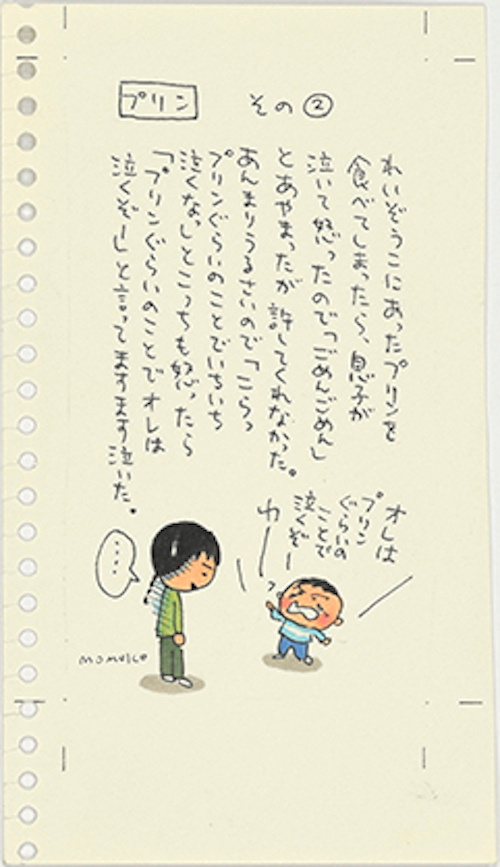 プリン
その②
れいぞうこにあったプリンを
食べてしまったら、息子が
泣いて怒ったので「ごめんごめん」
とあやまったが許してくれなかった。
あんまりうるさいので「こらっ
プリンぐらいのことでいちいち
泣くなっ」とこっちも怒ったら
「プリンぐらいのことでオレは
泣くぞー」と言ってますます泣いた。
オレは
プリン
ぐらいの
ことで
泣くぞー
‥‥
MOMOKO